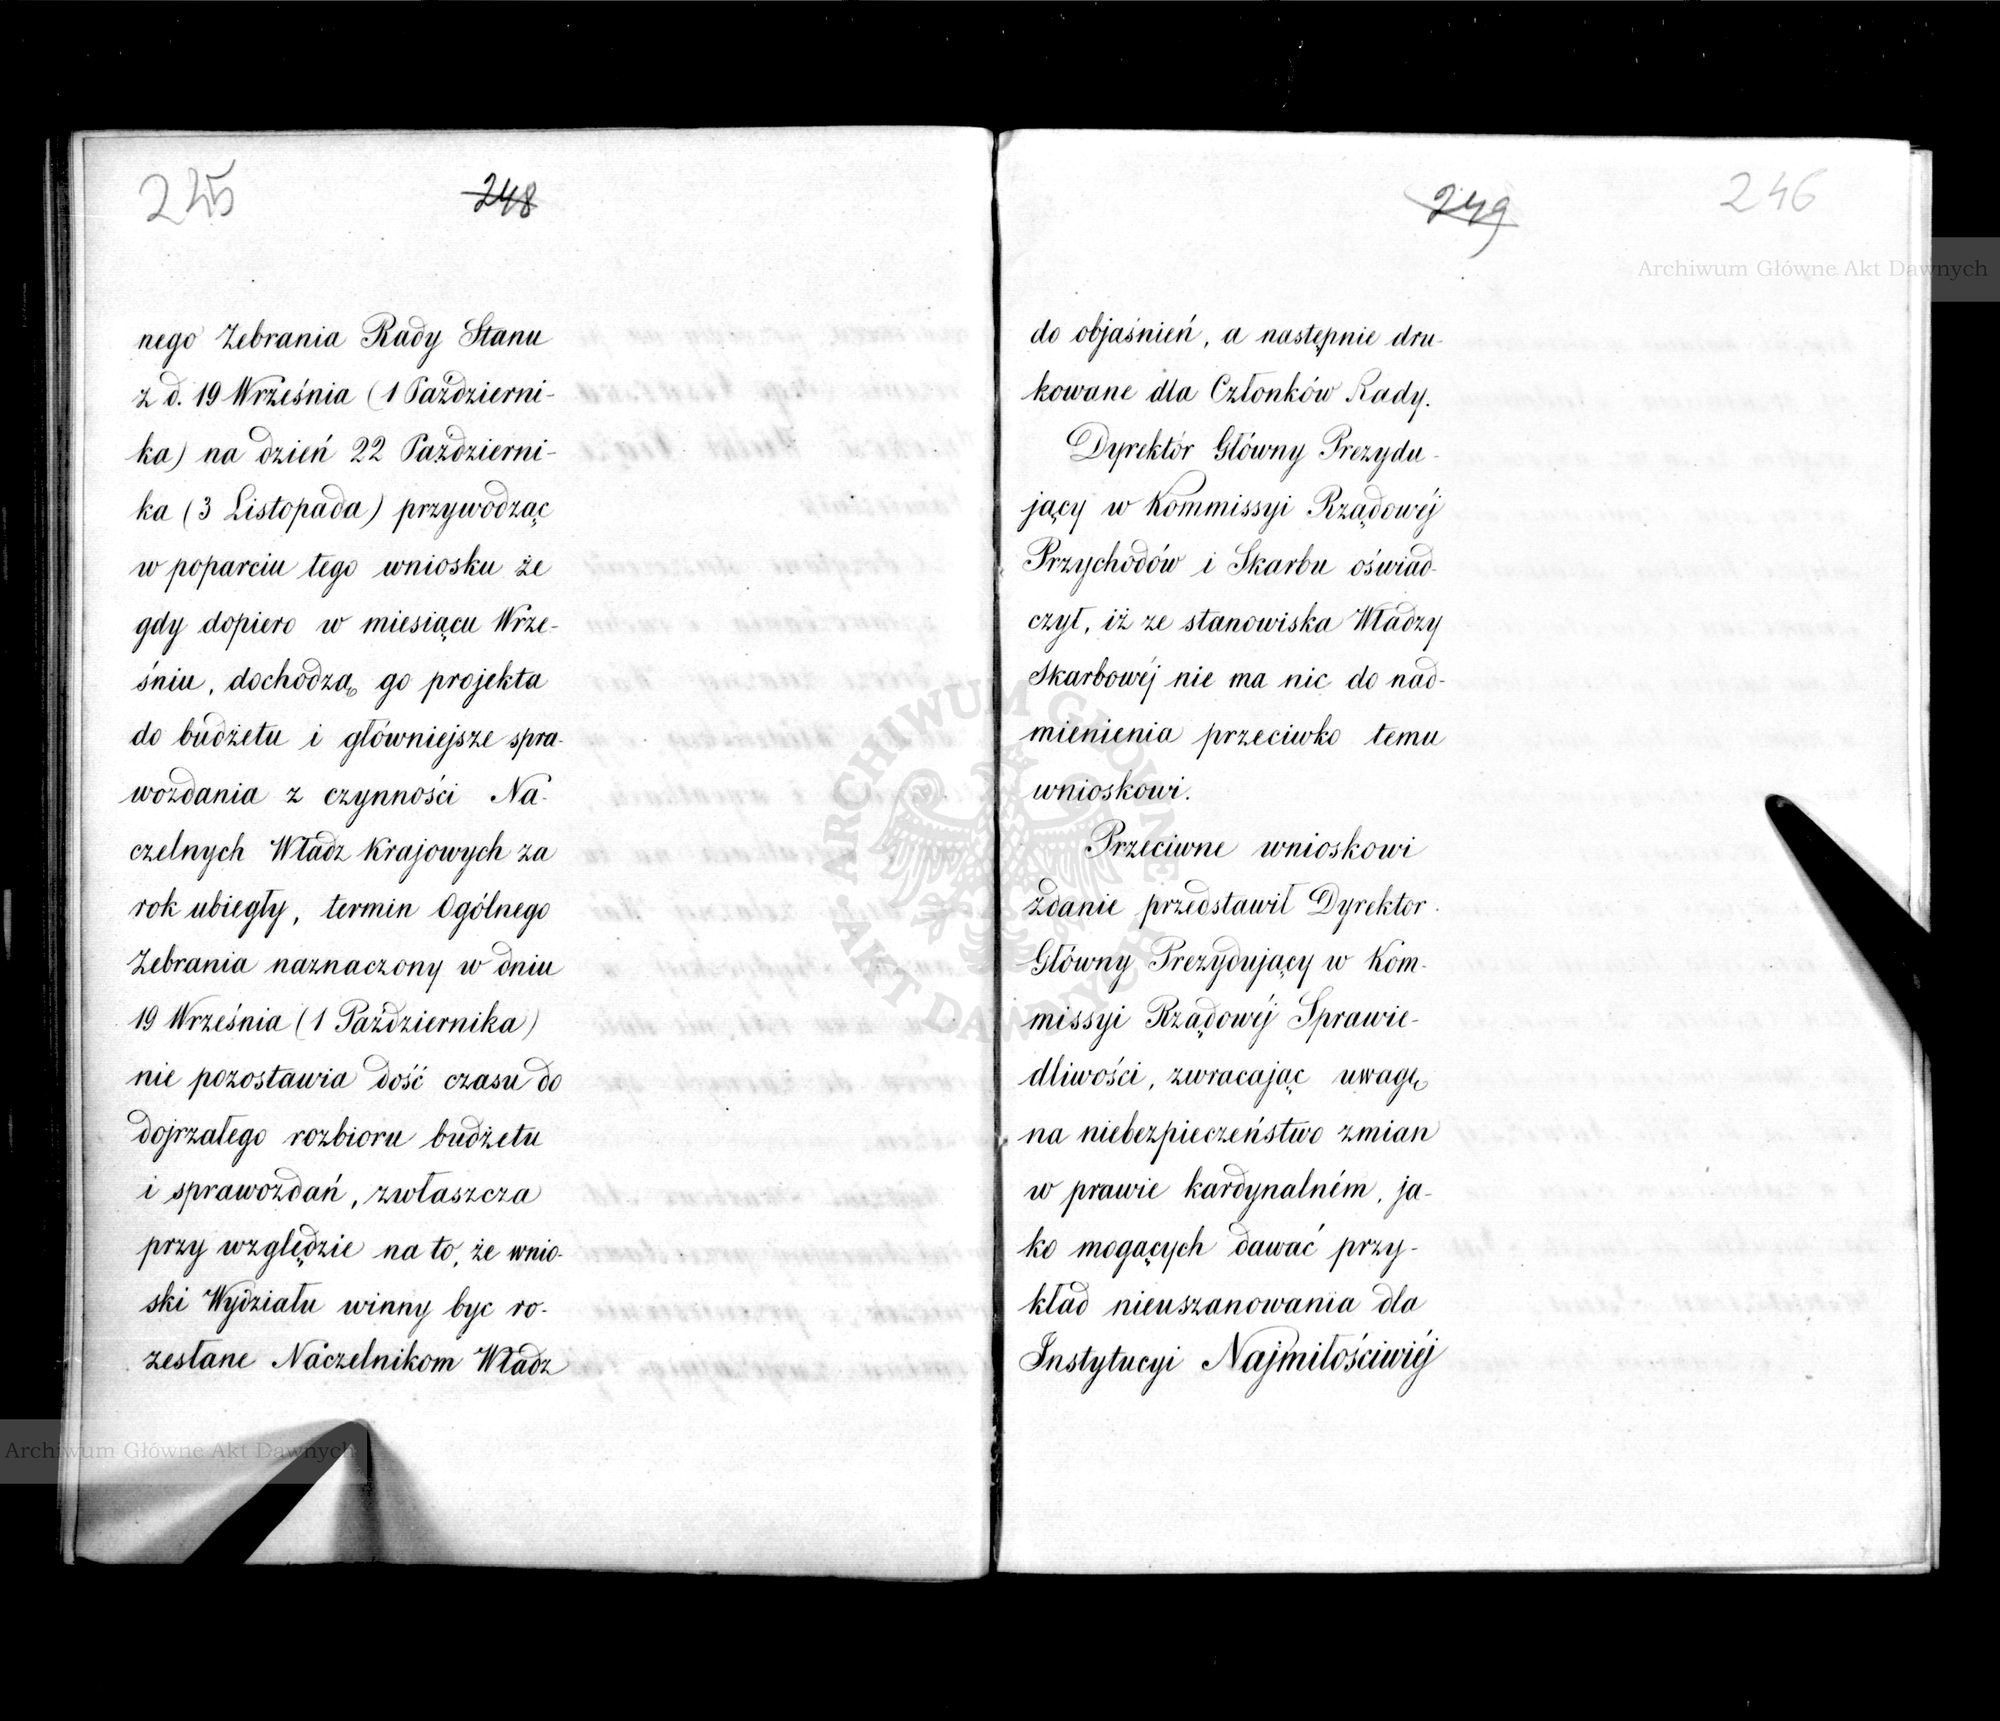 245
248
nego Zebrania Rady Stanu
z d. 19 Września (1 Październi-
ka) na dzień 22 Październi-
ka (3 Listopada) przywodząc
w poparciu tego wniosku że
gdy dopiero w miesiącu Wrze-
śniu, dochodzą go projekta
do budżetu i główniejsze spra-
wozdania z czynności Na-
czelnych Władz Krajowych za
rok ubiegły, termin Ogólnego
Zebrania naznaczony w dniu
19 Września (1 Października)
nie pozostawia dość czasu do
dojrzałego rozbioru budżetu
i sprawozdań, zwłaszcza
przy względzie na to, że wnio-
ski Wydziału winny byc ro-
zesłane Naczelnikom Władz
Archiwum Główne Akt Dawnych
249
246
Archiwum Główne Akt Dawnych
do objaśnień, a następnie dru-
kowane dla Członków Rady.
Dyrektór Główny Prezydu-
jący w Kommissyi Rządowéj
Przychodów i Skarbu oświad-
czył, iż ze stanowiska Władzy
Skarbowéj nie ma nic do nad-
mienienia przeciwko temu
wnioskowi.
Przeciwne wnioskowi
zdanie przedstawił Dyrektor
Główny Prezydujący w Kom-
missyi Rządowéj Sprawie-
dliwości, zwracając uwagę
na niebezpieczeństwo zmian
w prawie kardynalném, ja-
ko mogących dawać przy-
kład nieuszanowania dla
Instytucyi Najmiłościwiéj
ARCHIWUM GŁÓWNE
AKT DAWNYCH